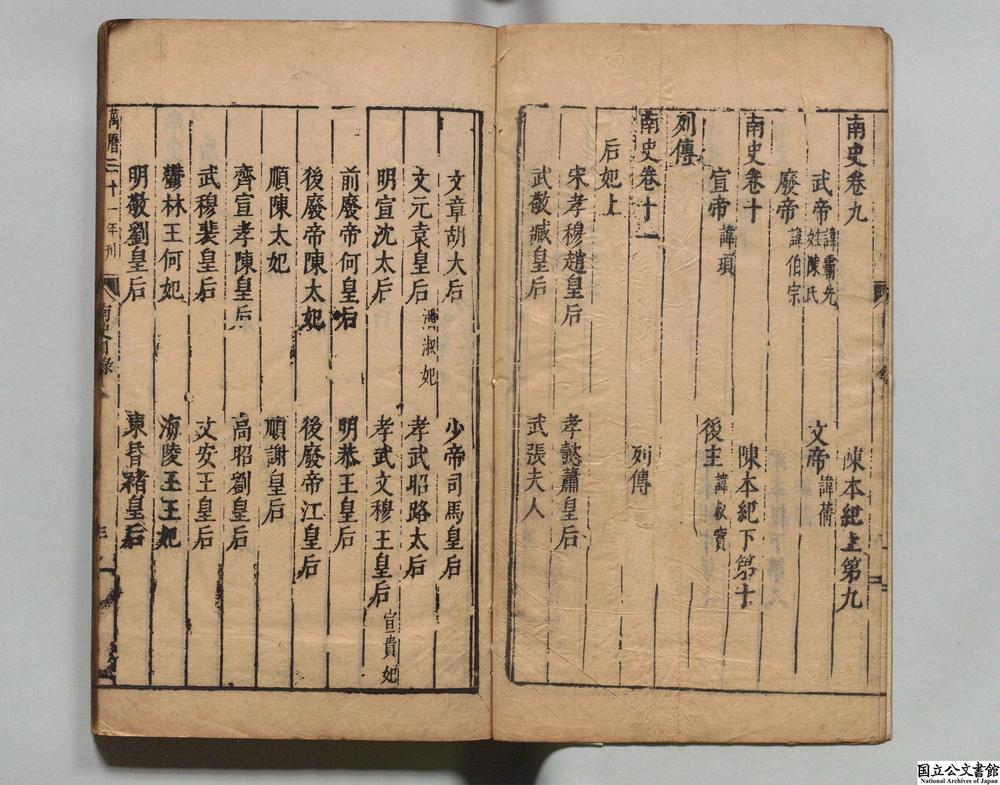 南史卷九 陳本紀上第九
武帝 諱霸先 姓陳氏 文帝 諱蒨
廢帝 諱伯宗
南史卷十 陳本紀下第十
宣帝 諱頊 後主 諱叔寶
列傳
南史卷十一 列傳
后妃上
宋孝穆趙皇后 孝懿蕭皇后
武敬臧皇后 武張夫人
文章胡太后 少帝司馬皇后
文元袁皇后 潘淑妃 孝武昭路太后
明宣沈太后 孝武文穆王皇后 宣貴妃
前廢帝何皇后 明恭王皇后
後廢帝陳太妃 後廢帝江皇后
順陳太妃 順謝皇后
齊宣孝陳皇后 高昭劉皇后
武穆裴皇后 文安王皇后
鬱林王何妃 海陵王王妃
明敬劉皇后 東昏褚皇后
萬曆三十 年刊 南史目錄
国立公文書館
National Archives of Japan